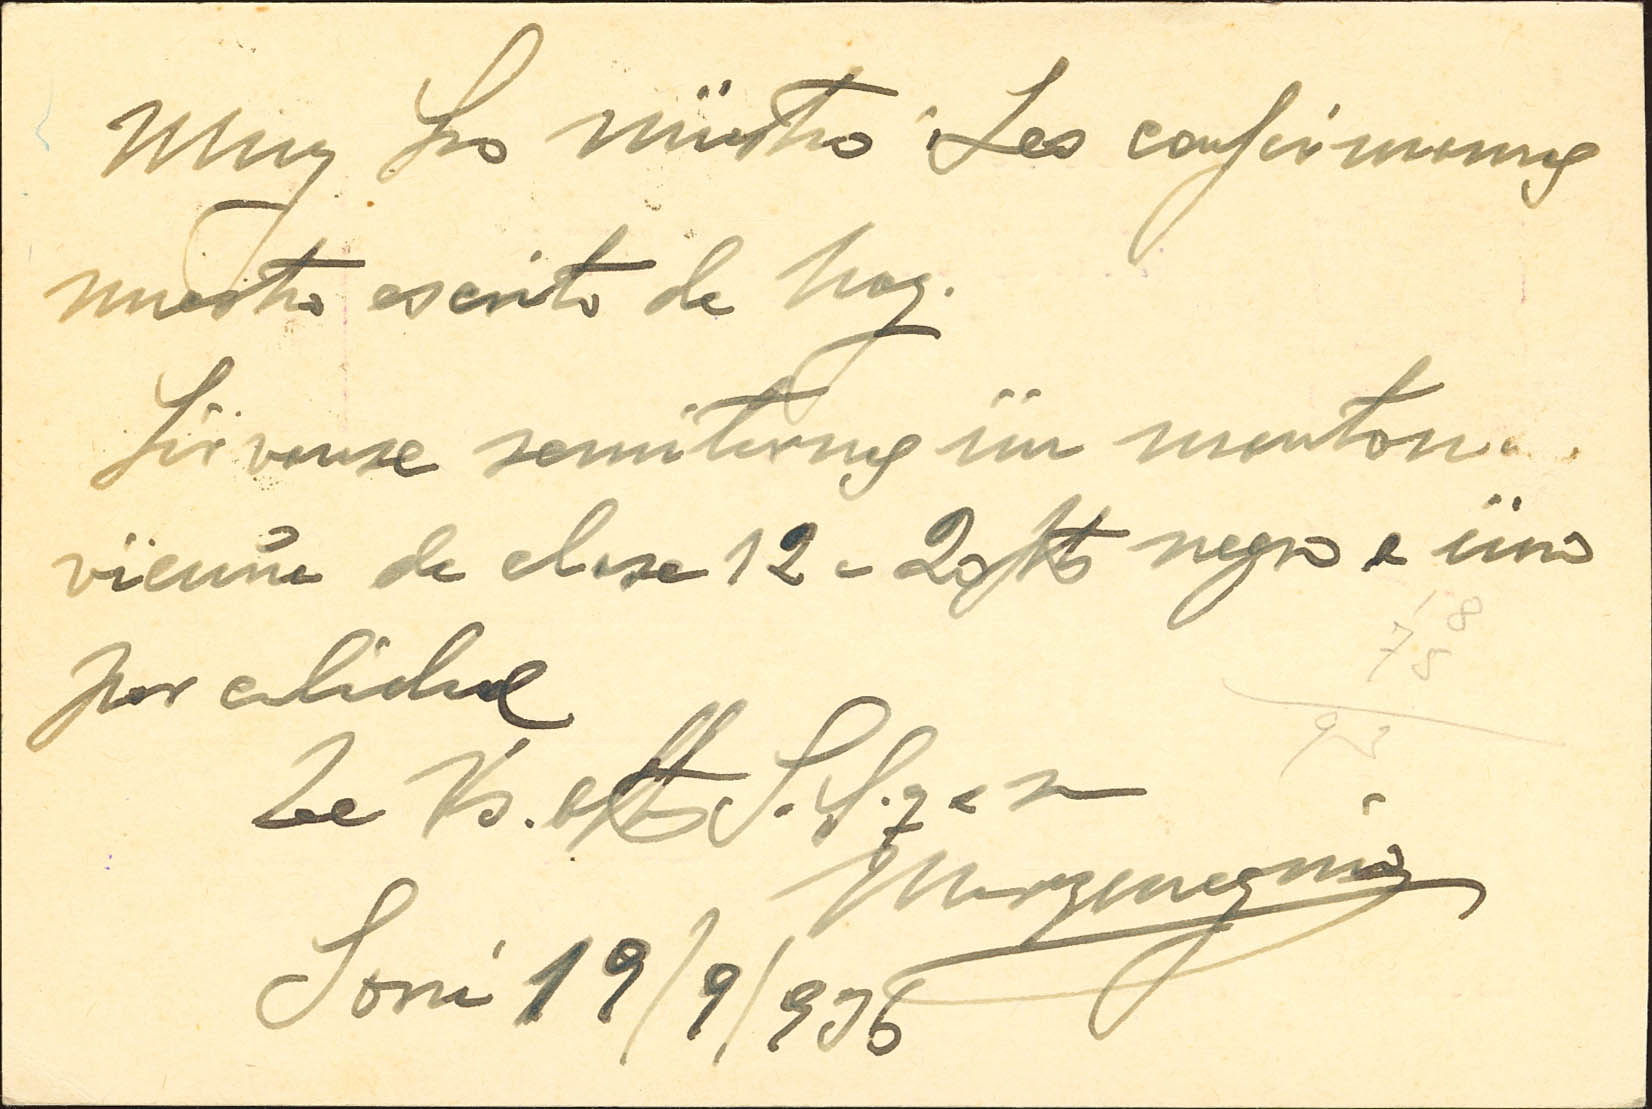 Muy Sro nuestro: Les confirmamos
nuestro escrito de hoy.
Sirvanse remitirnos un manton
vicuña de clase 12 a 20 pts negro e uno
por calidad
De Vs. afto S. S. q e s m
Soria 19/9/936
18
75
93